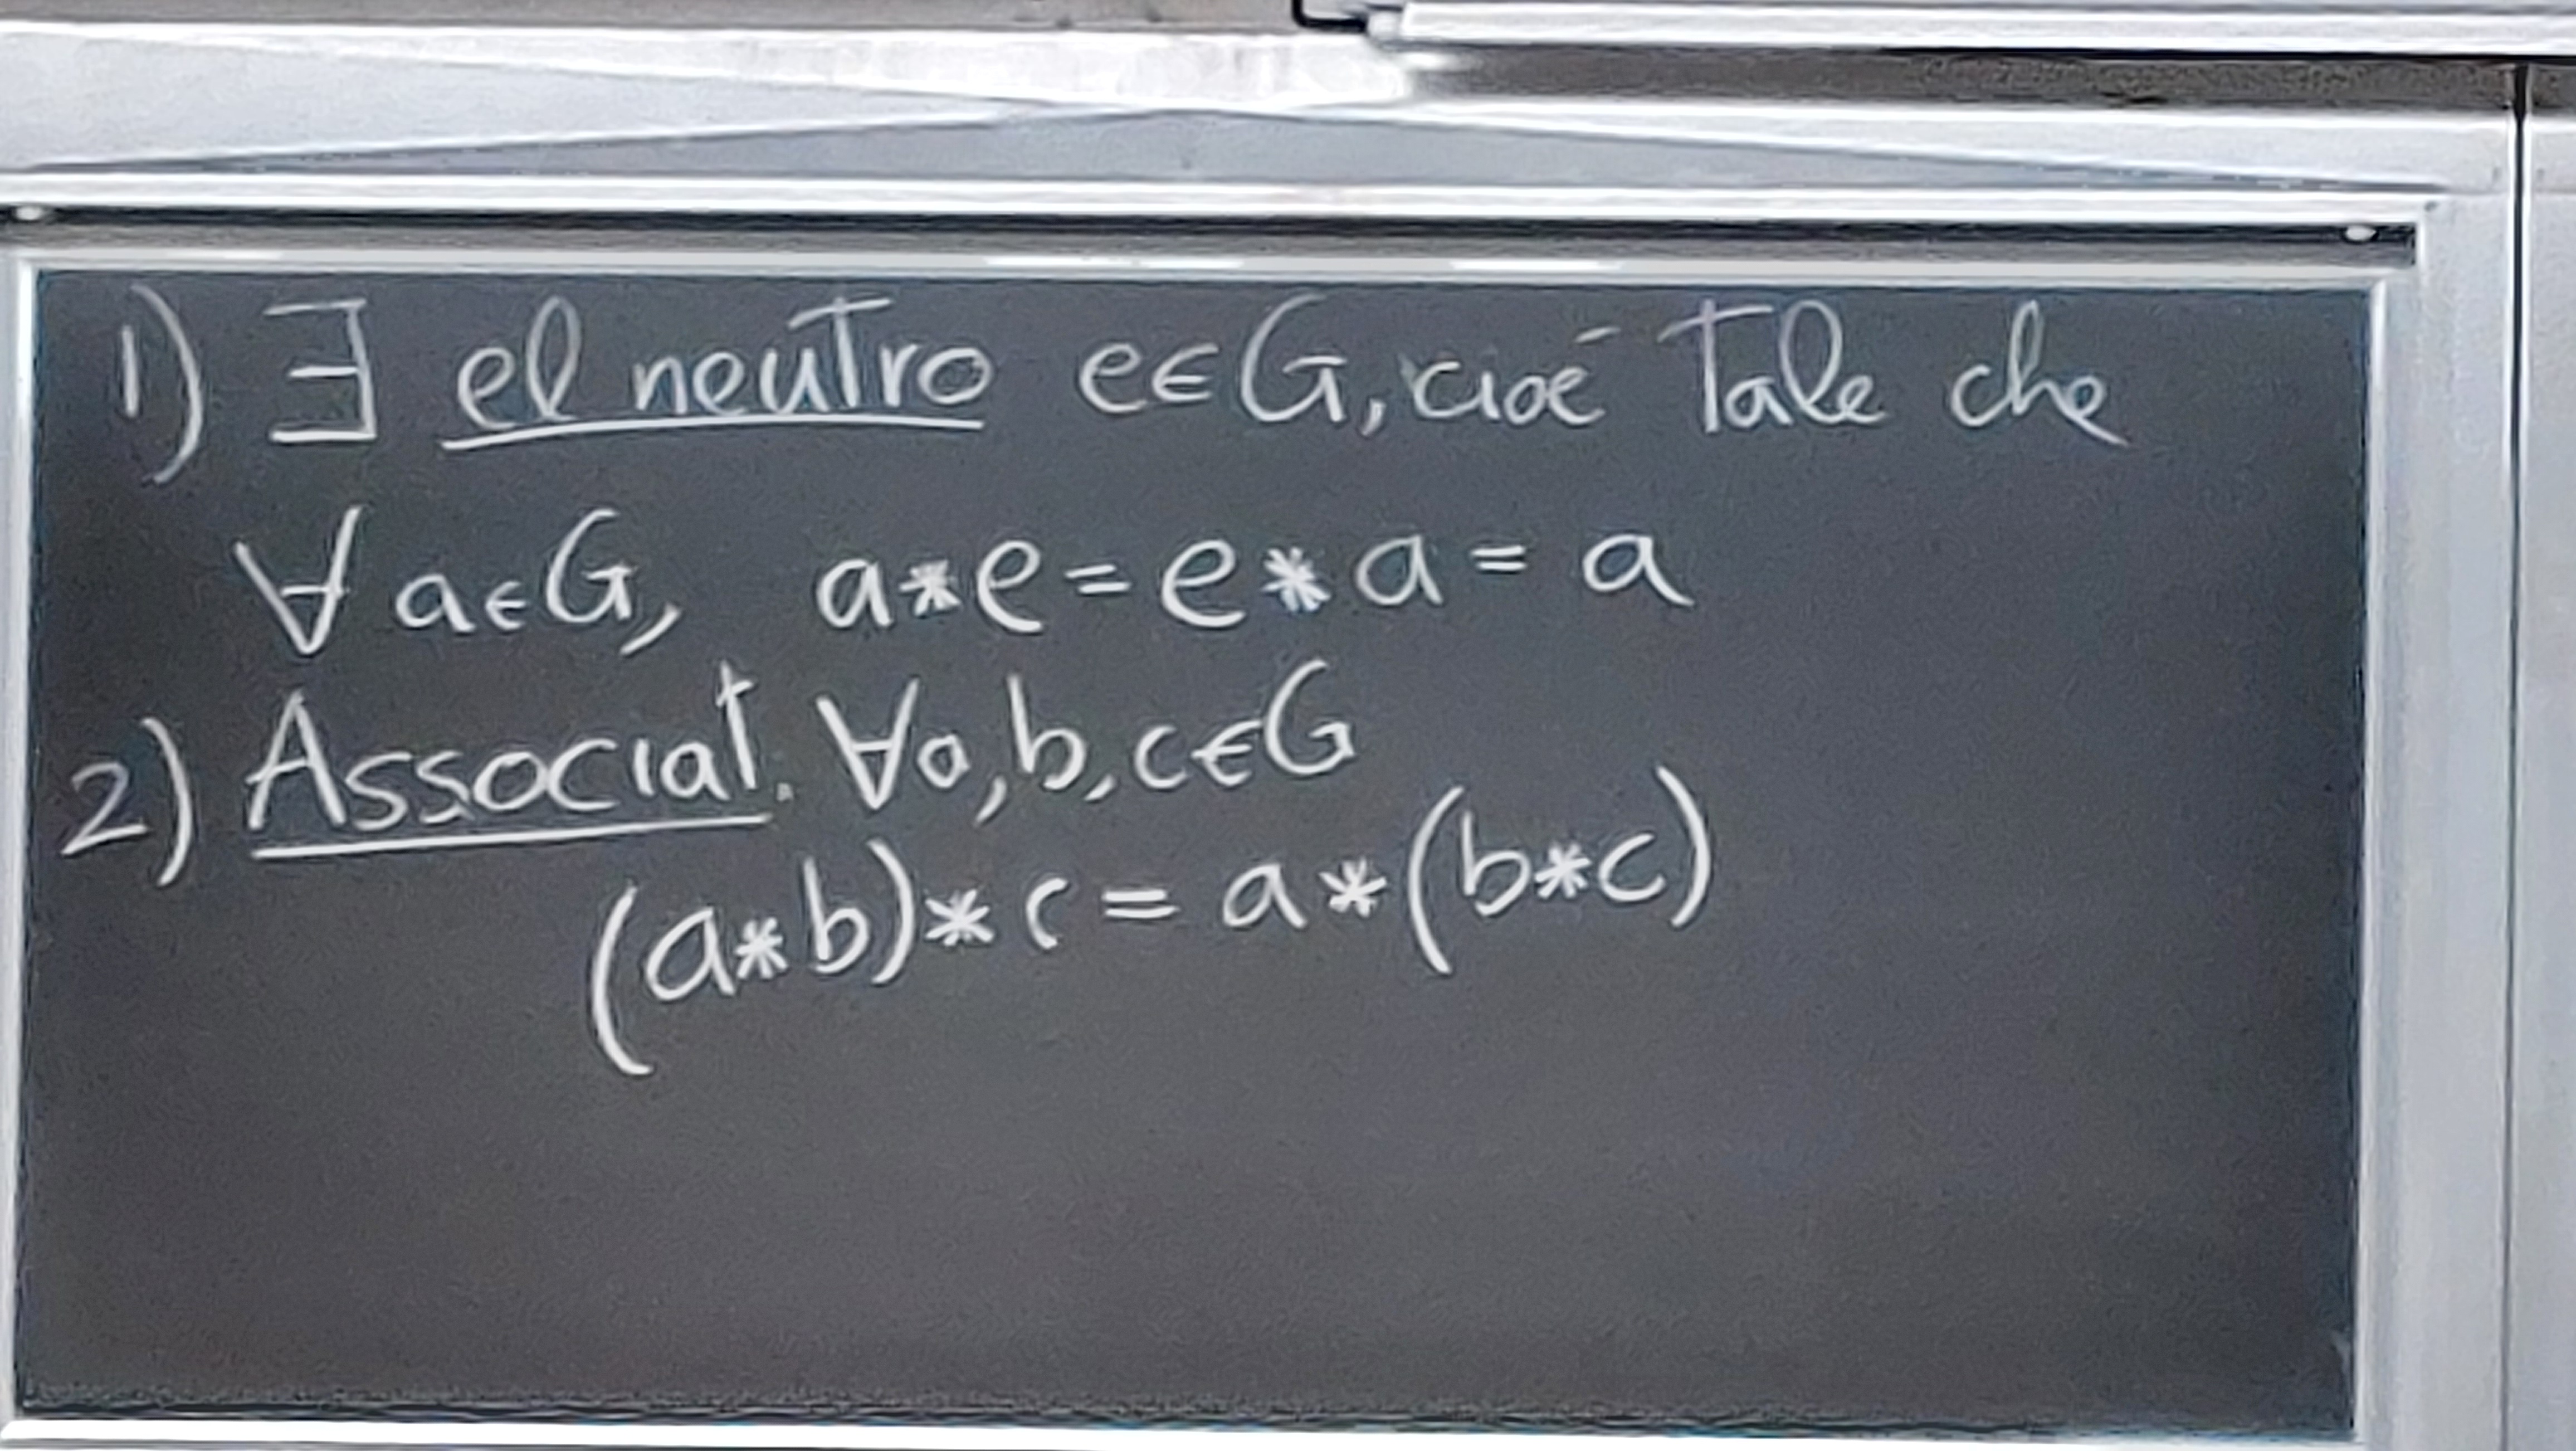 1) ∃ el neutro e∈G, cioé tale che
∀ a∈G, a*e=e*a=a
2) Associat. ∀a,b,c∈G
(a*b)*c=a*(b*c)